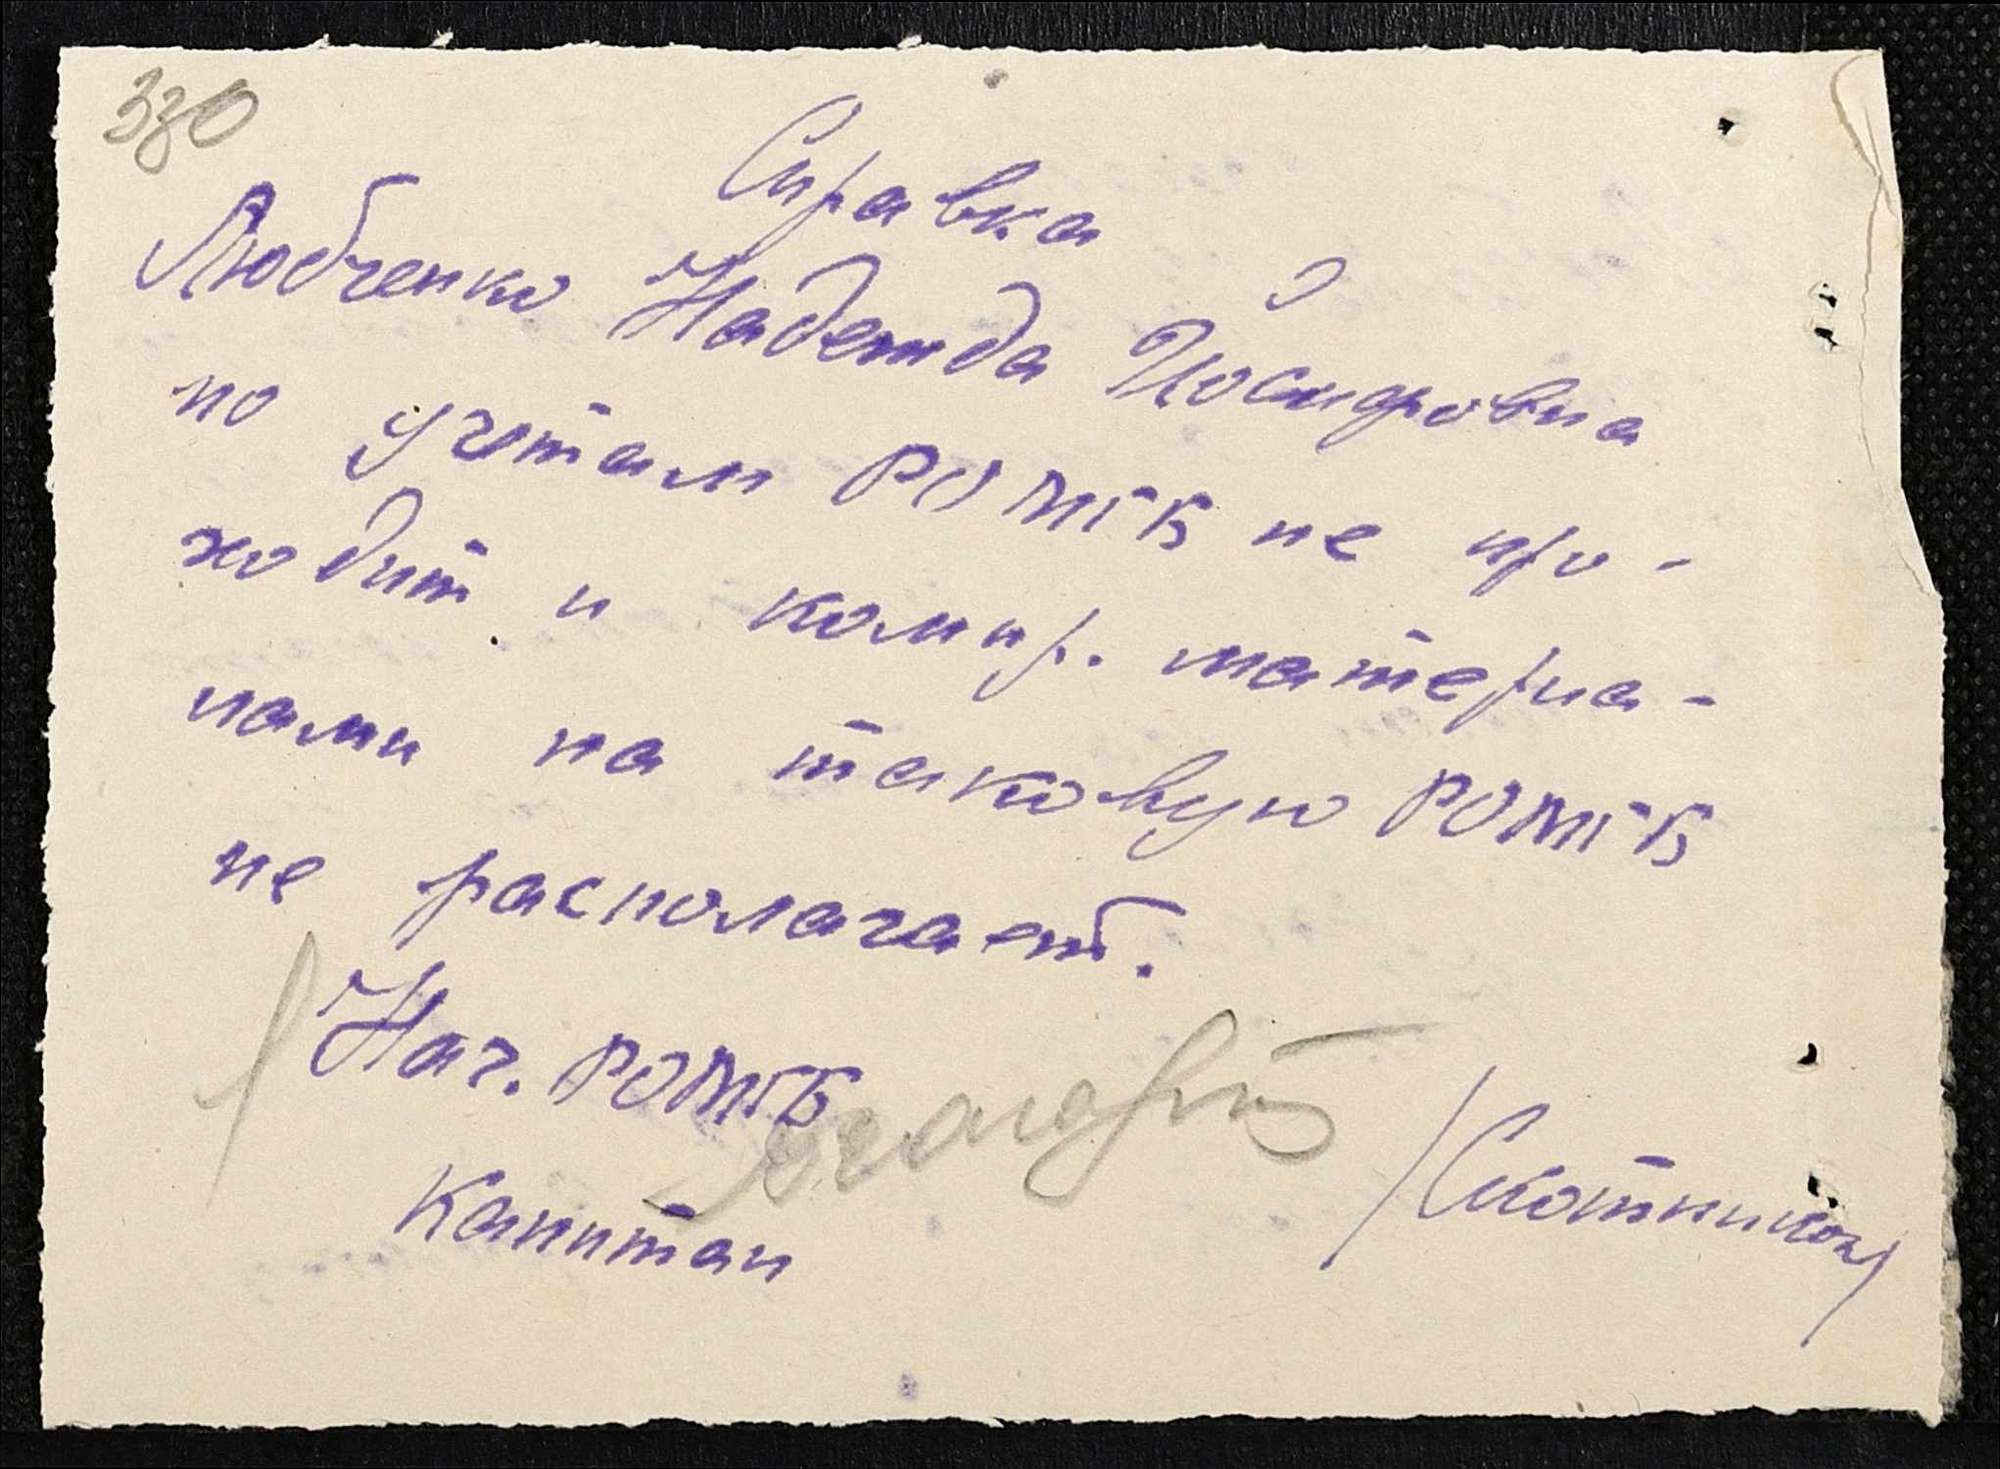 330
Справка
Любченко Надежда Йосифовна
по учетам РОМГБ не про-
ходит и компр. материа-
лами на таковую РОМГБ
не располагает.
Нач. РОМГБ
Капитан
/Скотников/